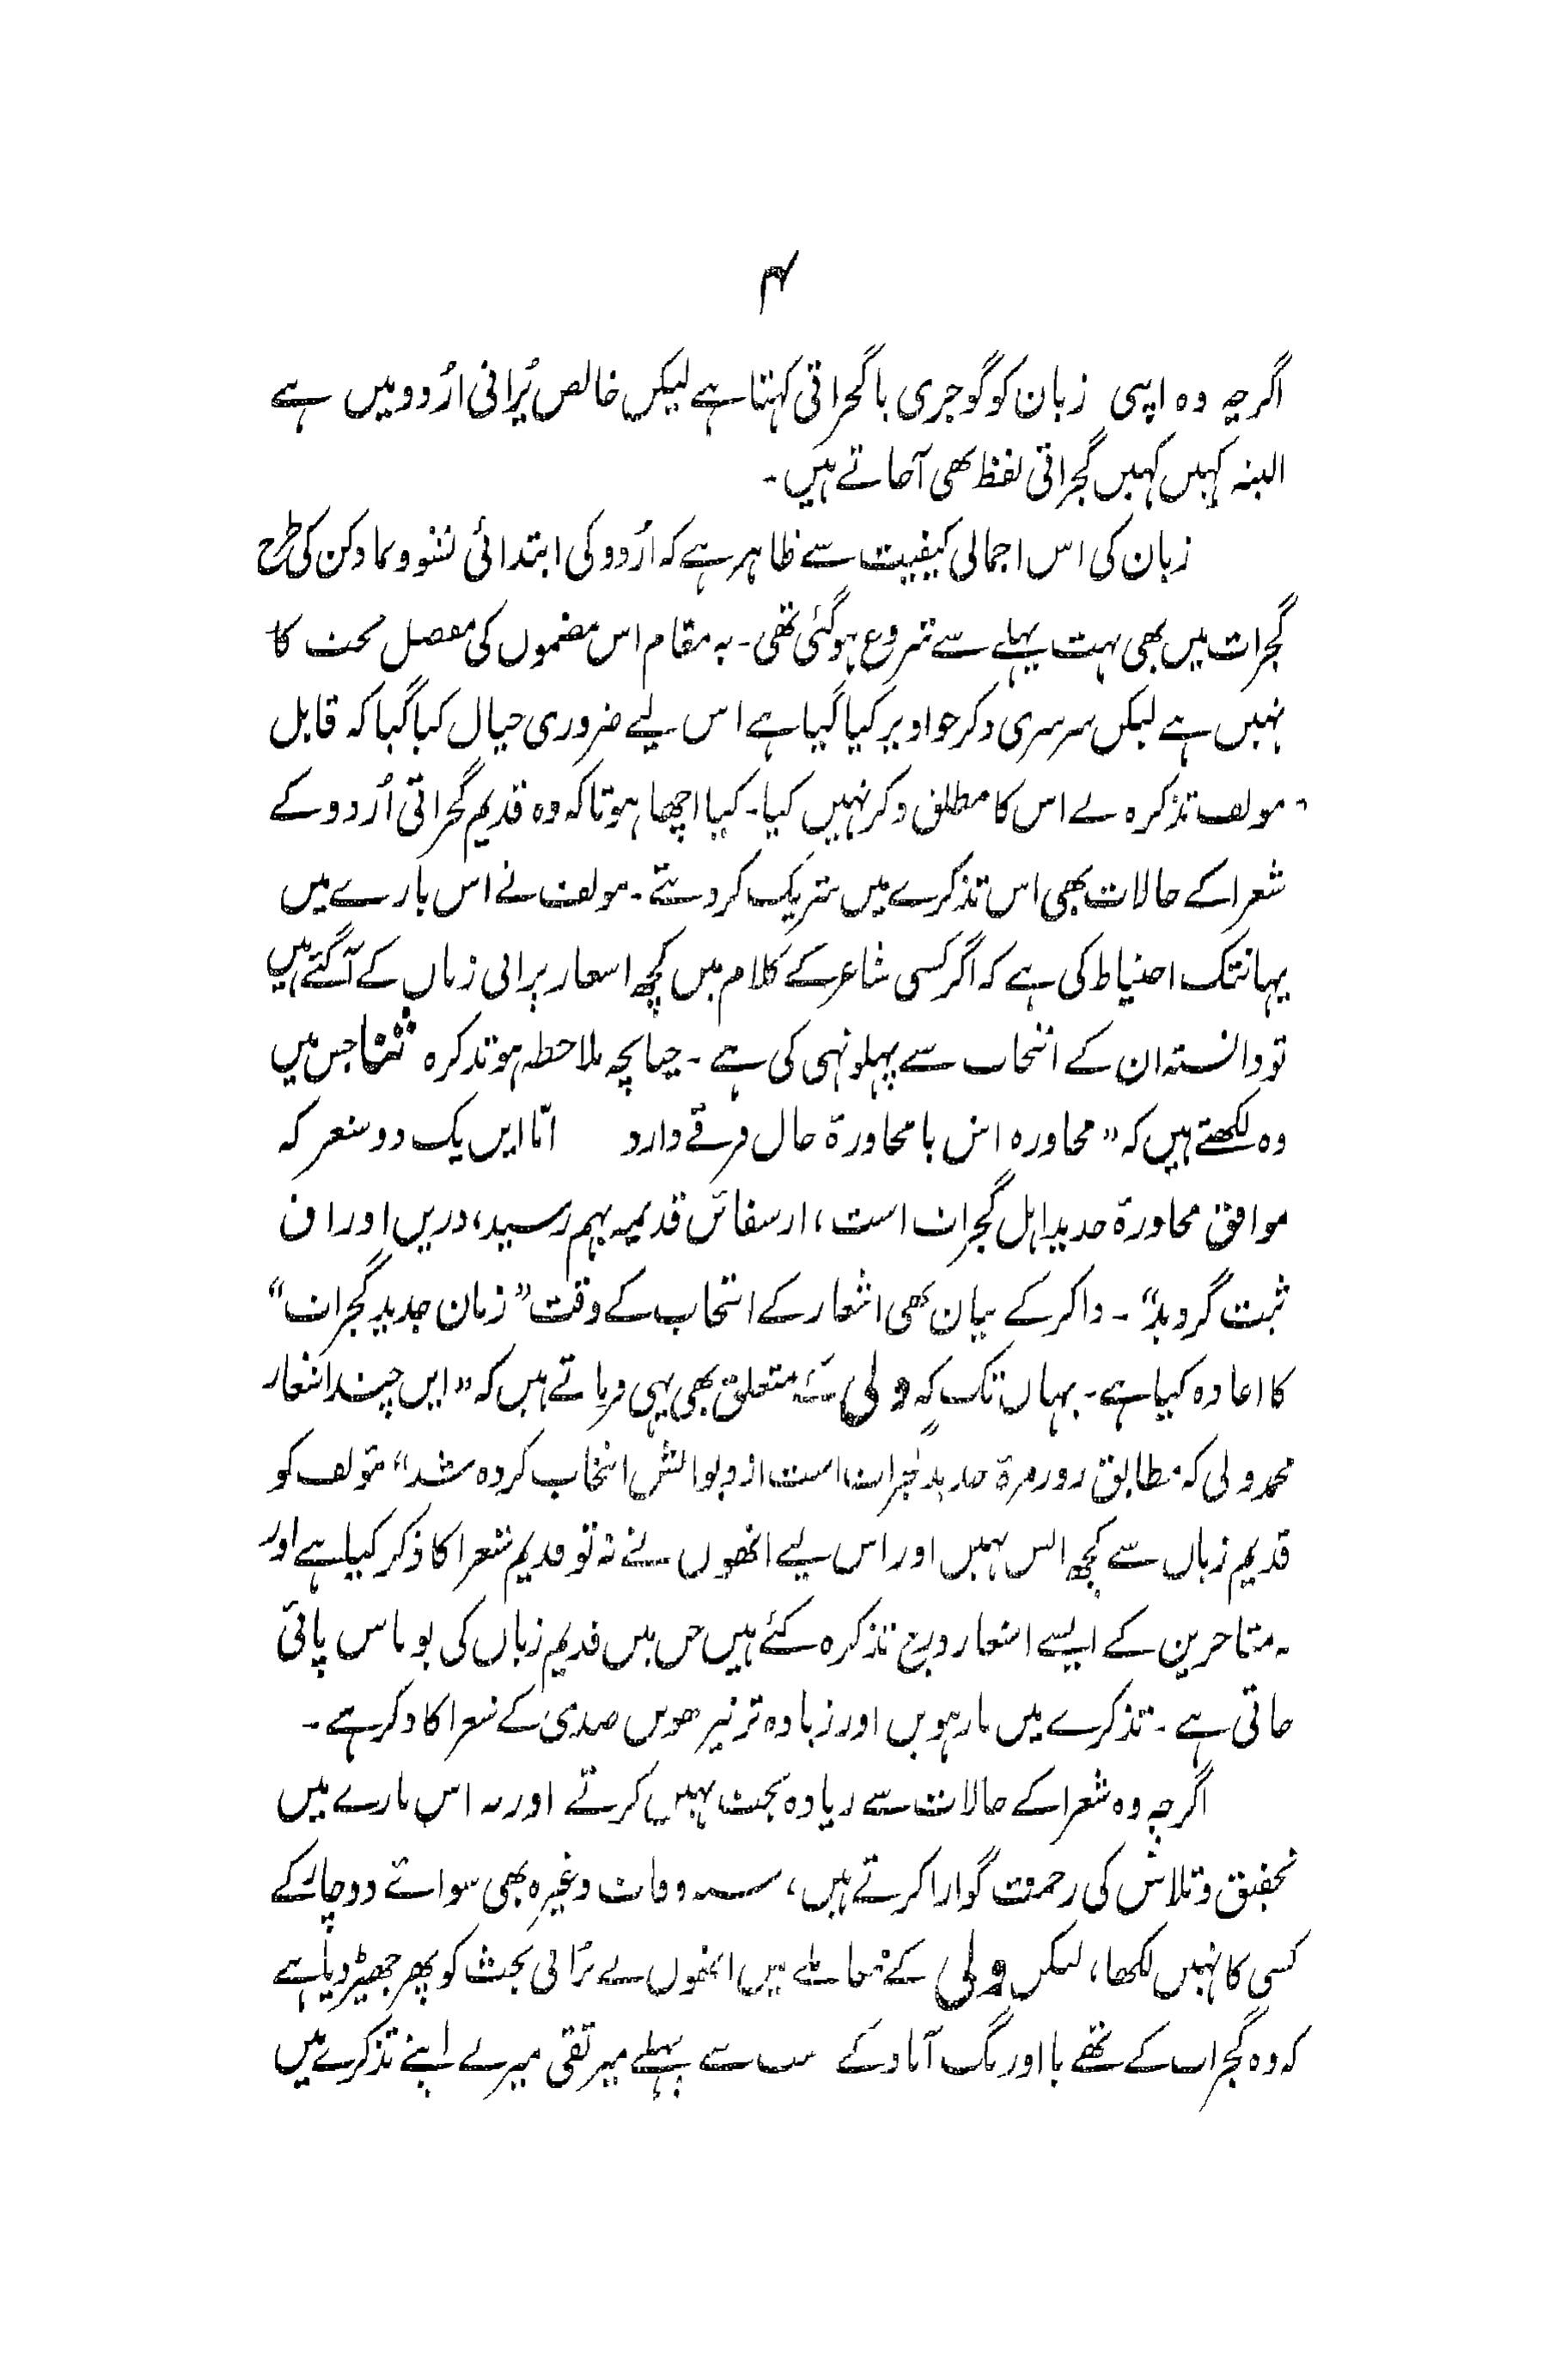 ۴
اگرچہ وہ اپنی زبان کو گوجری یا گجراتی کہتا ہے لیکن خالص پُرانی اُردو میں ہے
البتہ کہیں کہیں گجراتی لفظ بھی آجاتے ہیں۔
زبان کی اس اجمالی کیفیت سے ظاہر ہے کہ اُردو کی ابتدائی نشوونما دکن کی طرح
گجرات میں بھی بہت پہلے سے شروع ہوگئی تھی۔ یہ مقام اس مضموں کی مفصل بحث کا
نہیں ہے لیکن سرسری ذکر جو اوپر کیا گیا ہے اس لیے ضروری خیال کیا گیا کہ قابل
مولف تذکرہ نے اس کا مطلق ذکر نہیں کیا۔ کیا اچھا ہوتا کہ وہ قدیم گجراتی اُردو کے
شعرا کے حالات بھی اس تذکرے میں شریک کردیتے۔ مولف نے اس بارے میں
یہانتک احتیاط کی ہے کہ اگر کسی شاعر کے کلام میں کچھ اشعار پرانی زباں کے آگئے ہیں
تو دانستہ ان کے انتخاب سے پہلو تہی کی ہے۔ چنانچہ ملاحظہ ہو تذکرہ ثنا جس میں
وہ لکھتے ہیں کہ ”محاورہ اش با محاورۂ حال فرقے دارد امّا ایں یک دو شعر کہ
موافق محاورۂ جدید اہل گجرات است، از سفائن قدیمہ بہم رسید، دریں اوراق
ثبت گردید“۔ ذاکر کے بیان بھی اشعار کے انتخاب کے وقت ”زبان جدید گجرات“
کا اعادہ کیا ہے۔ یہاں تک کہ ولی کے متعلق بھی یہی فرماتے ہیں کہ ”ایں چند اشعار
محمد ولی کہ مطابق روزمرۂ جدید گجرات است از دیوانش انتخاب کردہ شد“ مؤلف کو
قدیم زباں سے کچھ انس نہیں اور اس لیے انھوں نے نہ تو قدیم شعرا کا ذکر کیا ہے اور
نہ متاخرین کے ایسے اشعار درج تذکرہ کئے ہیں جن میں قدیم زباں کی بو باس پائی
جاتی ہے۔ تذکرے میں بارہویں اور زیادہ تر تیرھویں صدی کے شعرا کا ذکر ہے۔
اگرچہ وہ شعرا کے حالات سے زیادہ بحث نہیں کرتے اور نہ اس بارے میں
تحقیق و تلاش کی زحمت گوارا کرتے ہیں، سنہ وفات وغیرہ بھی سوائے دوچار کے
کسی کا نہیں لکھا، لیکن ولی کے معاملے میں انھوں نے پُرانی بحث کو پھر چھیڑ دیا ہے
کہ وہ گجرات کے تھے یا اورنگ آباد کے سب سے پہلے میر تقی میر نے اپنے تذکرے میں